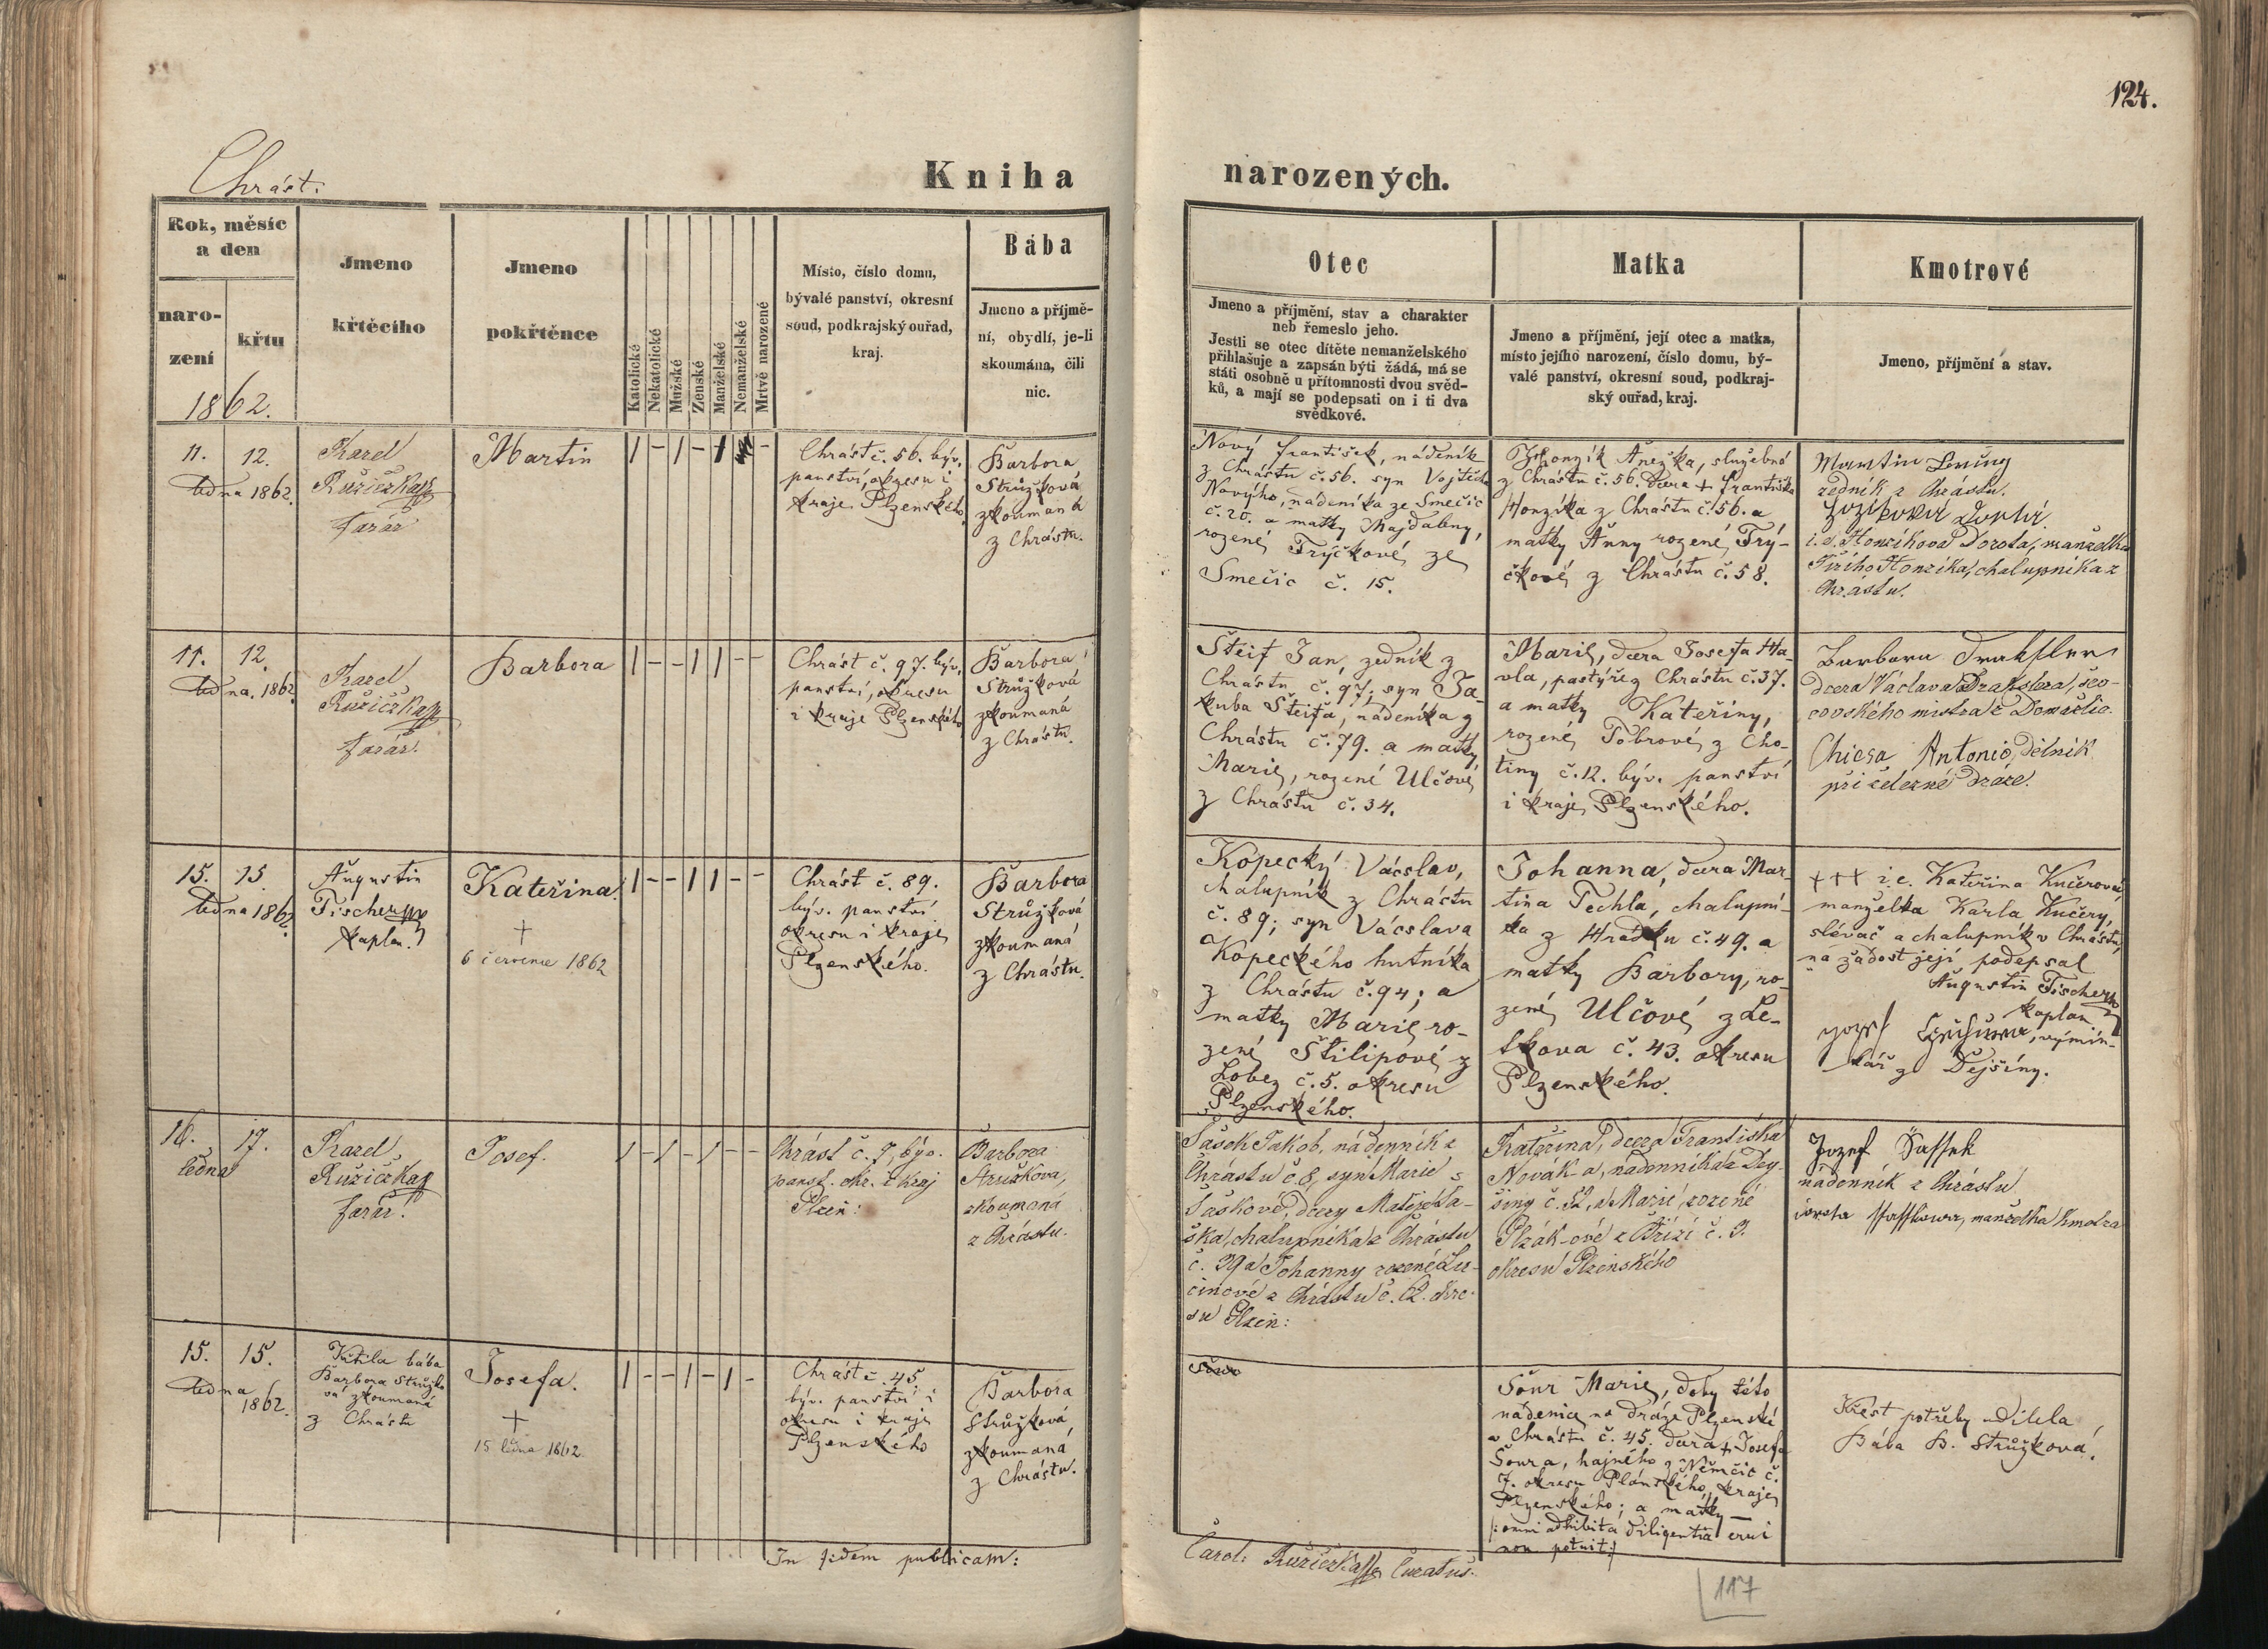 124.
Chrást.
Kniha narozených.
Rok, měsíc
a den
naro-
zení
křtu
1862.
Jmeno
křtěcího
Jmeno
pokřtěnce
Katolické
Nekatolické
Mužské
Ženské
Manželské
Nemanželské
Mrtvě narozené
Místo, číslo domu,
bývalé panství, okresní
soud, podkrajský ouřad,
kraj.
Bába
Jmeno a příjmě-
ní, obydlí, je-li
skoumána, čili
nic.
Otec
Jmeno a příjmění, stav a charakter
neb řemeslo jeho.
Jestli se otec dítěte nemanželského
přihlašuje a zapsán býti žádá, má se
státi osobně u přítomnosti dvou svěd-
ků, a mají se podepsati on i ti dva
svědkové.
Matka
Jmeno a příjmění, její otec a matka,
místo jejího narození, číslo domu, bý-
valé panství, okresní soud, podkraj-
ský ouřad, kraj.
Kmotrové
Jmeno, příjmění a stav.
11. 12.
ledna 1862.
Karel
Růžička
farář
Martin
1 - 1 - 1 -
Chrást č. 56. býv.
panství, okresu i
kraje Plzenského.
Barbora
Strůžková
zkoumaná
z Chrástu.
Nový František, nádeník
z Chrástu č. 56. syn Vojtěcha
Nového, nádeníka ze Smečic
č. 20. a matky Majdaleny,
rozené Tryčkové ze
Smečic č. 15.
Honzík Anežka, služebná
z Chrástu č. 56. dcera + Františka
Honzíka z Chrástu č. 56. a
matky Anny rozené Trý-
čkové z Chrástu č. 58.
Martin
zedník z Chrástu.
i. e. Honzíkova Dorota, manželka
Jiřího Honzíka, chalupníka z
Chrástu.
11. 12.
ledna. 1862
Karel
Růžička
farář.
Barbora
1 - - 1 1 - -
Chrást č. 97. býv.
panství, okresu
i kraje Plzenského
Barbora
Strůžková
zkoumaná
z Chrástu.
Šteif Jan, zedník z
Chrástu č. 97; syn Ja-
kuba Šteifa, nádeníka z
Chrástu č. 79. a matky
Marie, rozené Ulčové
z Chrástu č. 34.
Marie, dcera Josefa Ha-
vla, pastýře z Chrástu č. 37.
a matky Kateřiny,
rozené Tobrové z Cho-
tiny č. 12. býv. panství
i kraje Plzenského.
Barbara
dcera Václava Drakslera, šev-
covského mistra z Domažlic.
Chiesa Antonio, dělník
při železné dráze.
15. 15.
ledna 1862.
Augustin
Fischer
kaplan.
Kateřina.
+
6 července 1862
1 - - 1 1 - -
Chrást č. 89.
býv. panství
okresu i kraje
Plzenského.
Barbora
Strůžková
zkoumaná
z Chrástu.
Kopecký Vácslav,
chalupník z Chrástu
č. 89; syn Vácslava
Kopeckého hutníka
z Chrástu č. 94; a
matky Marie ro-
zené Štilipové z
Lobez č. 5. okresu
Plzenského.
Johanna, dcera Mar-
tina Techla, chalupní-
ka z Hrádku č. 49. a
matky Barbory, ro-
zené Ulčové z Le-
tkova č. 43. okresu
Plzenského.
+++ i. e. Kateřina Kučerová,
manželka Karla Kučery,
slévač a chalupník v Chrástu,
na žádost její podepsal
Augustin Fischer
kaplan
Jozef výmin-
kář z Dejšiny.
16. 17.
ledna
Karel
Růžička
farář.
Josef.
1 - 1 - 1 - -
Chrást č. 7, býv.
panst. okr. i kraj
Plzeň:
Barbora
Stružkova,
zkoumaná
z Chrástu.
Šašek Jakob, nádenník z
Chrástu č. 8, syn Marie
Šaškové, dcery Matěje Ša-
ška, chalupníka z Chrástu
č. 39 a Johanny rozené Lu-
cinové z Chrástu č. 62. okre-
su Plzeň:
Kateřina, dcera Františka
Novák-a, nádenníka z Dej-
šiny č. 52, a Marie, rozené
Plzák-ové z Břízí č. 3.
okresu Plzenského
Jozef Šassek
nádenník z Chrástu
manželka kmotra
15. 15.
ledna
1862.
Křtila bába
Barbora Strůžko-
vá zkoumaná
z Chrástu
Josefa.
+
15 ledna 1862.
1 - - 1 - 1 -
Chrást č. 45
býv. panství i
okresu i kraje
Plzenského
Barbora
Strůžková
zkoumaná
z Chrástu.
Šour Marie, doby této
nádenice na dráze Plzenské
v Chrástu č. 45. dcera + Josefa
Šoura, hajného z Němčic č.
7. okresu Plánského, kraje
Plzenského; a matky —
/: omni adhibita diligentia erui
non potuit :/
Křest potřeby udílela
bába B. Strůžková.
In fidem publicam:
Carol: Růžička Curatus.
117